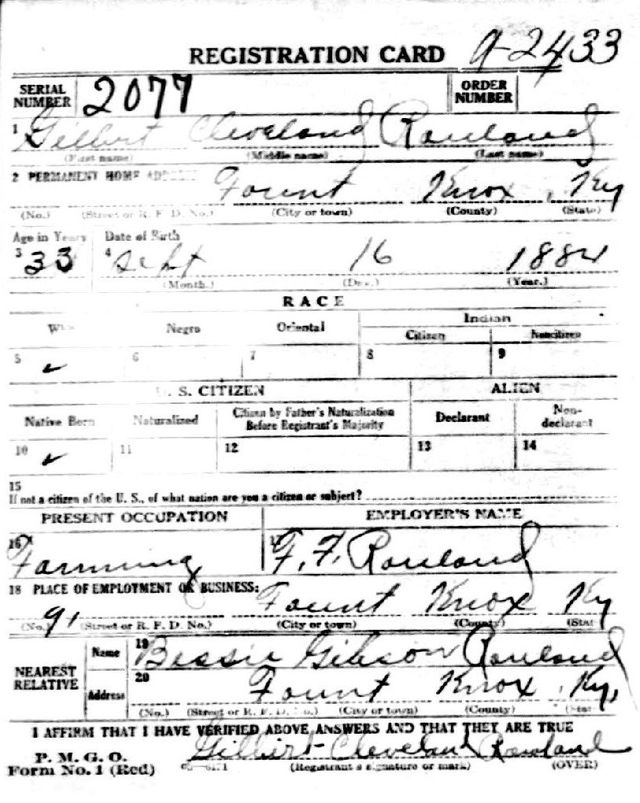 REGISTRATION CARD 9-2433
SERIAL NUMBER 2077 ORDER NUMBER
1 Gilbert Cleveland Rowland
(First name) (Middle name) (Last name)
2 PERMANENT HOME ADDRESS Fount Knox, Ky
(No.) (Street or R. F. D. No.) (City or town) (County) (State)
Age in Years Date of Birth
3 33 4 Sept 16 1884
(Month.) (Day.) (Year.)
RACE
White Negro Oriental Indian
Citizen Noncitizen
5 ✓ 6 7 8 9
U. S. CITIZEN ALIEN
Native Born Naturalized Citizen by Father's Naturalization Before Registrant's Majority Declarant Non-declarant
10 ✓ 11 12 13 14
15
If not a citizen of the U. S., of what nation are you a citizen or subject?
PRESENT OCCUPATION EMPLOYER'S NAME
16 Farming 17 F. F. Rowland
18 PLACE OF EMPLOYMENT OR BUSINESS:
Fount Knox Ky
(No.) (Street or R. F. D. No.) (City or town) (County) (State)
NEAREST RELATIVE
Name 19 Bessie Gibson Rowland
Address 20 Fount Knox, Ky,
(No.) (Street or R. F. D. No.) (City or town) (County) (State)
I AFFIRM THAT I HAVE VERIFIED ABOVE ANSWERS AND THAT THEY ARE TRUE
P. M. G. O.
Form No. 1 (Red) Gilbert Cleveland Rowland
(Registrant's signature or mark) (OVER)